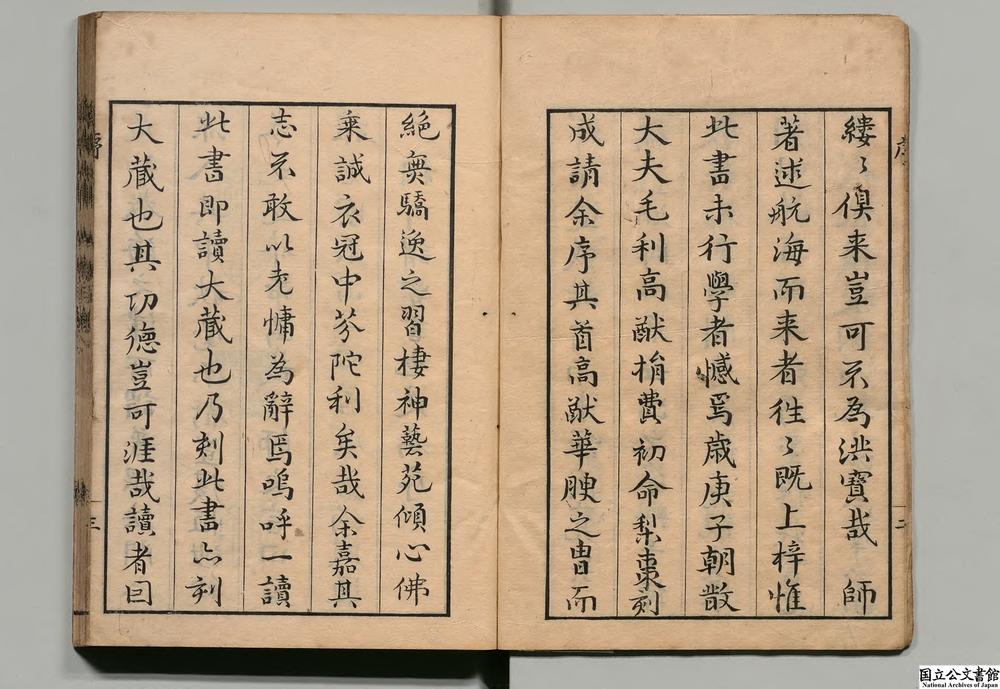 縷〻俱来豈可不為洪寶哉　師
著述航海而来者徃〻既上梓惟
此書未行學者憾焉歳庚子朝散
大夫毛利高猷捐費初命梨棗刻
成請余序其首高猷華腴之曹而
絶無驕逸之習棲神藝苑傾心佛
乗誠衣冠中芬陀利矣哉余嘉其
志不敢以老慵為辭焉嗚呼一讀
此書即讀大藏也乃刻此書亦刻
大藏也其功德豈可涯哉讀者曰
序
二
三
国立公文書館
National Archives of Japan